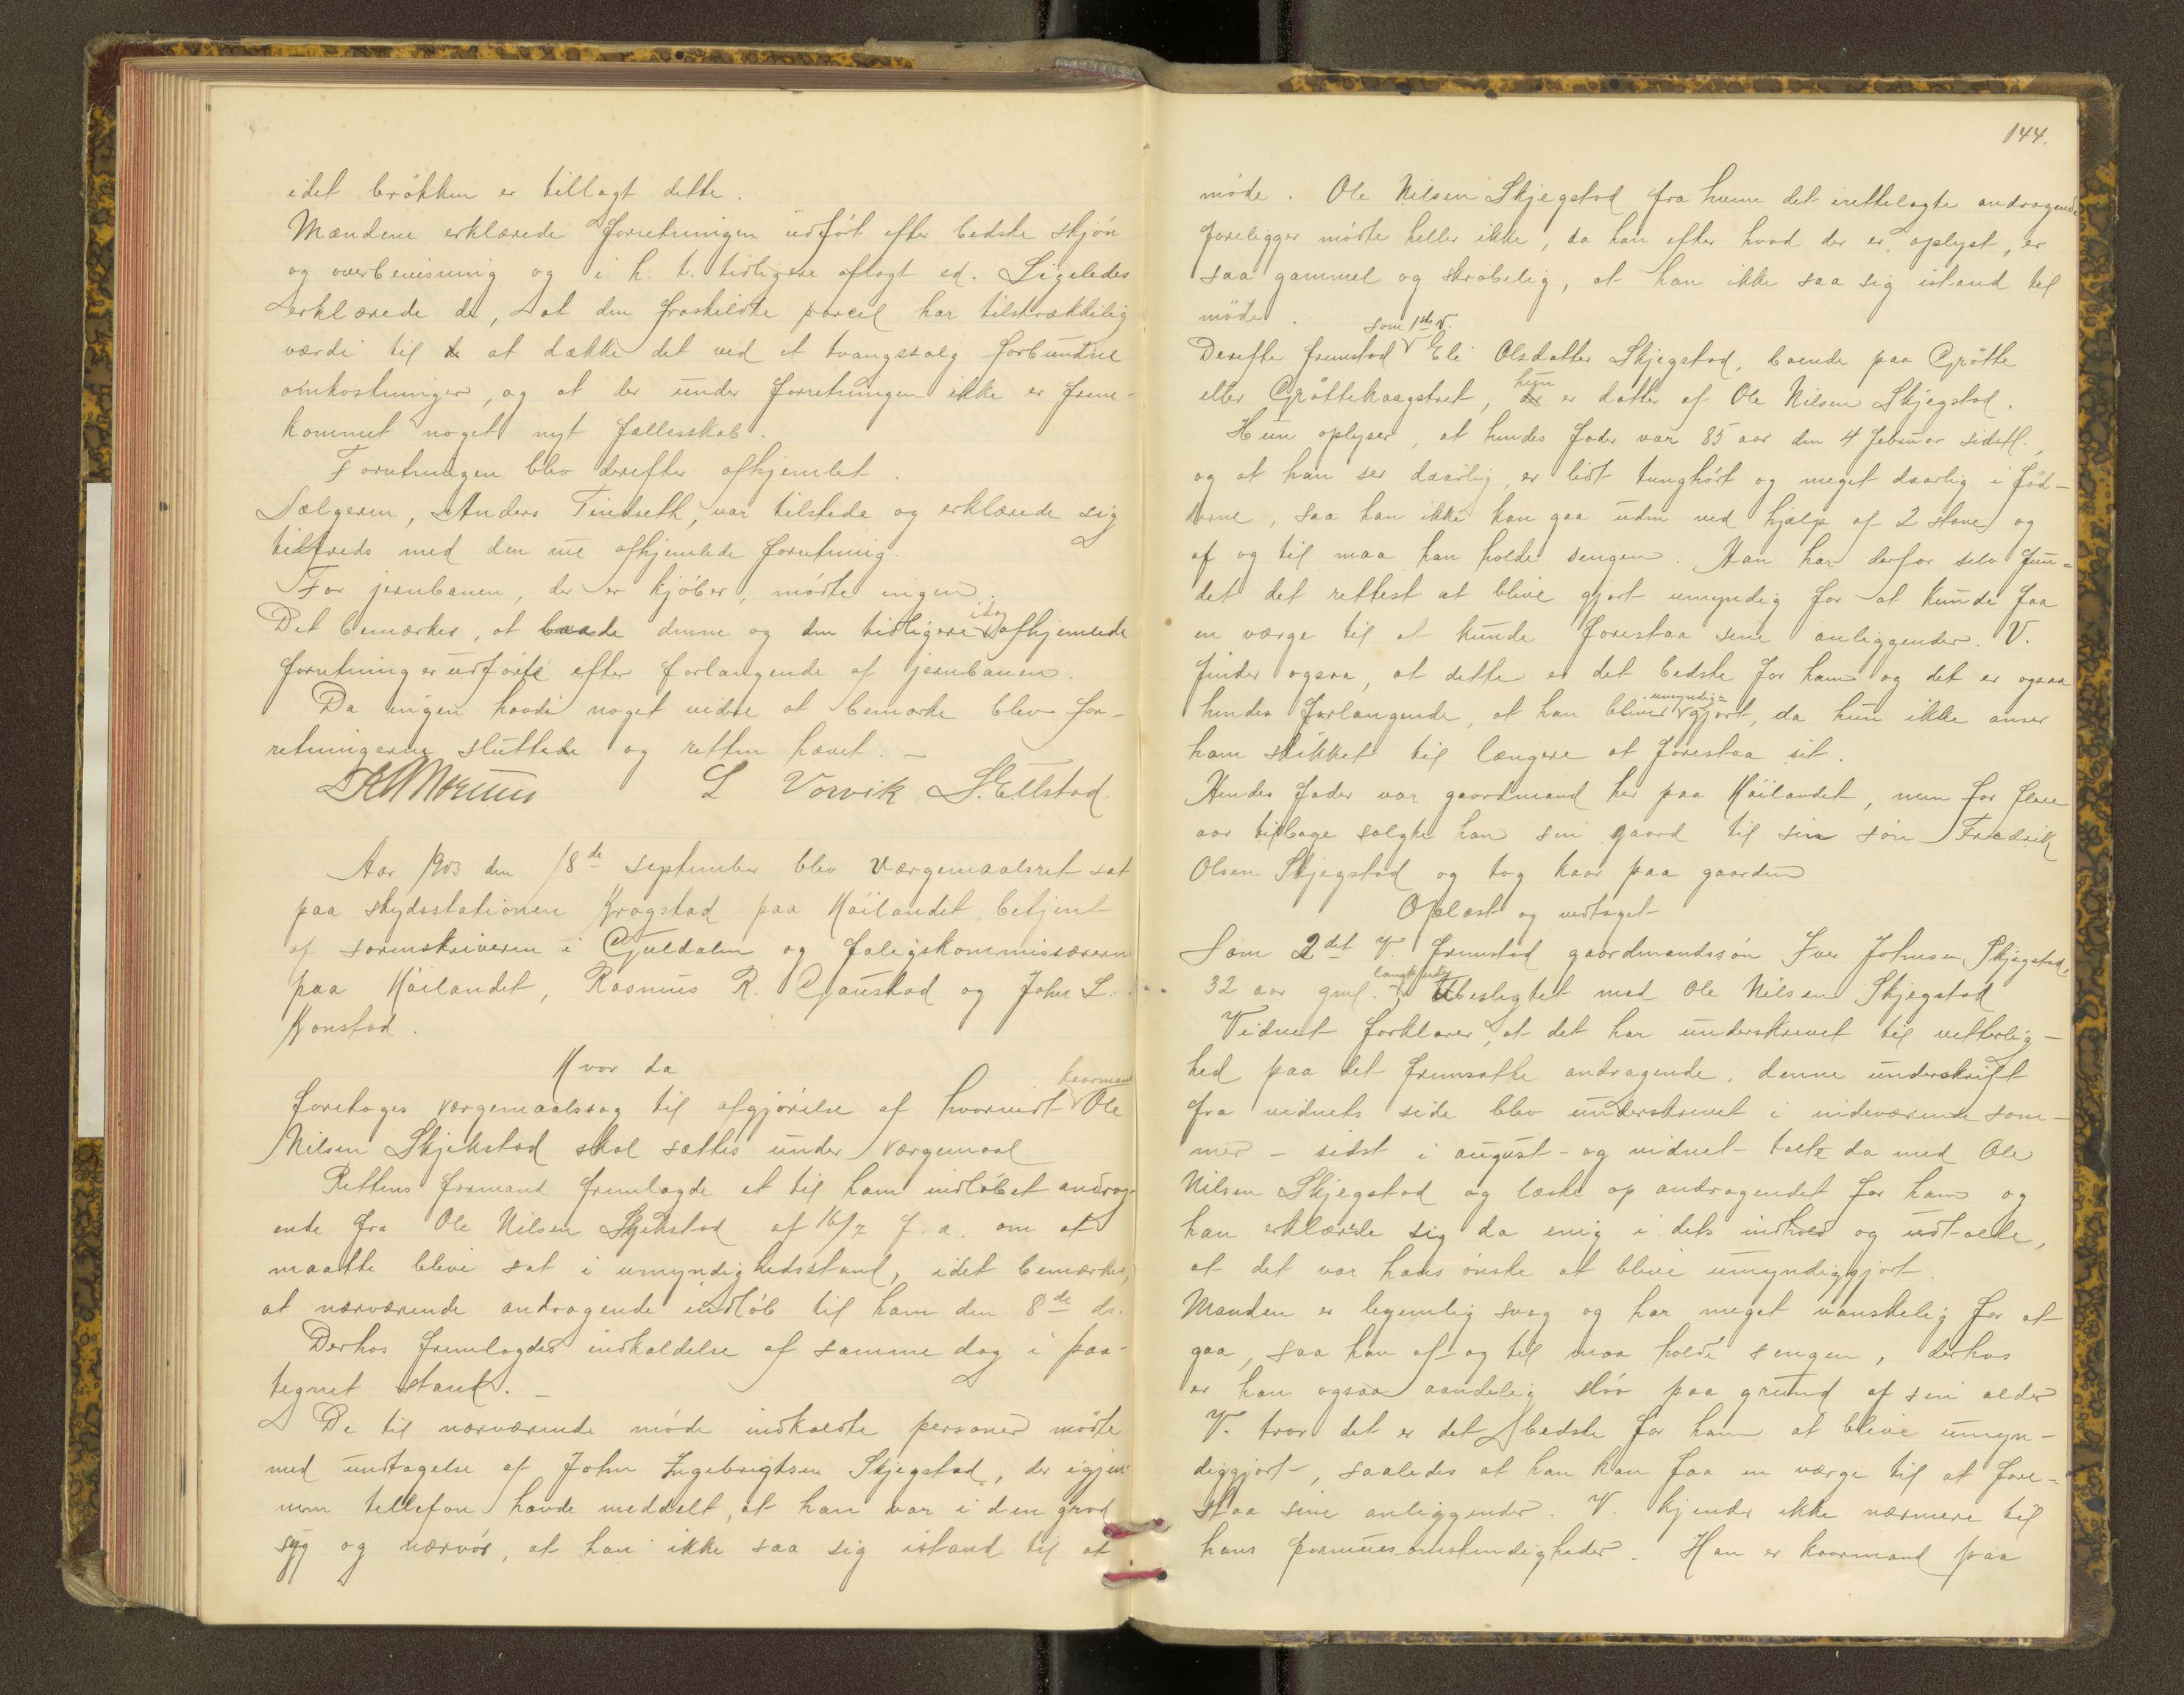 idet brøkken er tillagt dette.
Mændene erklærede forretningen udført efter bedste skjøn
og overbevisning og i h. t. tidligere aflagt ed. Ligeledes
erklærede de, at den fraskildte parcel har tilstrækkelig
værdi til at dække det ved et tvangssalg forbundne
omkostninger, og at der under forretningen ikke er frem-
kommet noget nyt fællesskab.
Forretningen blev derefter afhjemlet.
Sælgeren, Anders Tindseth, var tilstede og erklærede sig
tilfreds med den nu afhjemlede forretning.
For jernbanen, der er kjøber, mødte ingen.
Det bemærkes, at baade denne og den tidligere idag afhjemlede
forretning er udførte efter forlangende af jernbanen.
Da ingen havde noget videre at bemærke blev for-
retningerne sluttede og retten hævet. -
L Vorvik S. Ellstad.
Aar 1903 den 18de september blev værgemaalsret sat
paa skydsstationen Kragstad paa Høilandet, betjent
af sorenskriveren i Guldalen og forligskommissærern
paa Høilandet, Rasmus R. Gaustad og John L.
Konstad.
Hvor da
foretoges værgemaalssag til afgjørelse af hvorvidt kaarmand Ole
Nilsen Skjekstad skal sættes under værgemaal
Rettens formand fremlagde et til ham indløbet andrag-
ende fra Ole Nilsen Skjekstad af 16/7 f. a. om at
maatte blive sat i umyndighedsstand, idet bemærkes,
at nærværende andragende indløb til ham den 8de ds.
Derhos fremlagdes indkaldelse af samme dag i paa-
tegnet stand. -
De til nærværende møde indkaldte personer mødte
med undtagelse af John Ingebrigtsen Skjegstad, der igjen-
nem tellefon havde meddelt, at han var i den grad
syg og nærvøs, at han ikke saa sig istand til at
144.
møde. Ole Nilsen Skjegstad fra hvem det irettelagte andragende
foreligger mødte heller ikke, da han efter hvad der er oplyst, er
saa gammel og skrøbelig, at han ikke saa sig istand til
møde.
Derefter fremstod som 1ste V. Eli Olsdatter Skjegstad, boende paa Grøtte
eller Grøttehaagstret, hun er datter af Ole Nilsen Skjegstad.
Hun oplyser, at hendes fader var 85 aar den 4 februar sidstl.,
og at han ser daarlig, er lidt tunghørt og meget daarlig i fød-
derne, saa han ikke kan gaa uden ved hjælp af 2 stave og
af og til maa han holde sengen. Han har derfor selv fun-
det det rettest at blive gjort umyndig for at kunde faa
en værge til at kunde forestaa sine anliggender. V.
finder ogsaa, at dette er det bedste for ham og det er ogsaa
hendes forlangende, at han bliver umyndig- gjort, da hun ikke anser
ham skikket til længere at forestaa sit.
Hendes fader var gaardmand her paa Høilandet, men for flere
aar tilbage solgte han sin gaard til sin søn Fredrik
Olsen Skjegstad og tog kaar paa gaarden
Oplæst og vedtaget
Som 2det V. fremstod gaardmandssøn Iver Johnsen Skjegstad,
32 aar gml. langt ude beslegtet med Ole Nilsen Skjegstad
Vidnet forklarer, at det har underskrevet til vitterlig-
hed paa det fremsatte andragende; denne underskrift
fra vidnets side blev underskrevet i indeværende som-
mer - sidst i august - og vidnet talte da med Ole
Nilsen Skjegstad og læste op andragendet for ham og
han erklærede sig da enig i dets indhold og udtalte,
at det var hans ønske at blive umyndiggjort.
Manden er legemlig svag og har meget vanskelig for at
gaa, saa han af og til maa holde sengen, derhos
er han ogsaa aandelig sløv paa grund af sin alder
V. tror det er det bedste for ham at blive umyn-
diggjort, saaledes at han kan faa en værge til at fore-
staa sine anliggender. V. kjender ikke nærmere til
hans formues-omstendigheder. Han er kaarmand paa